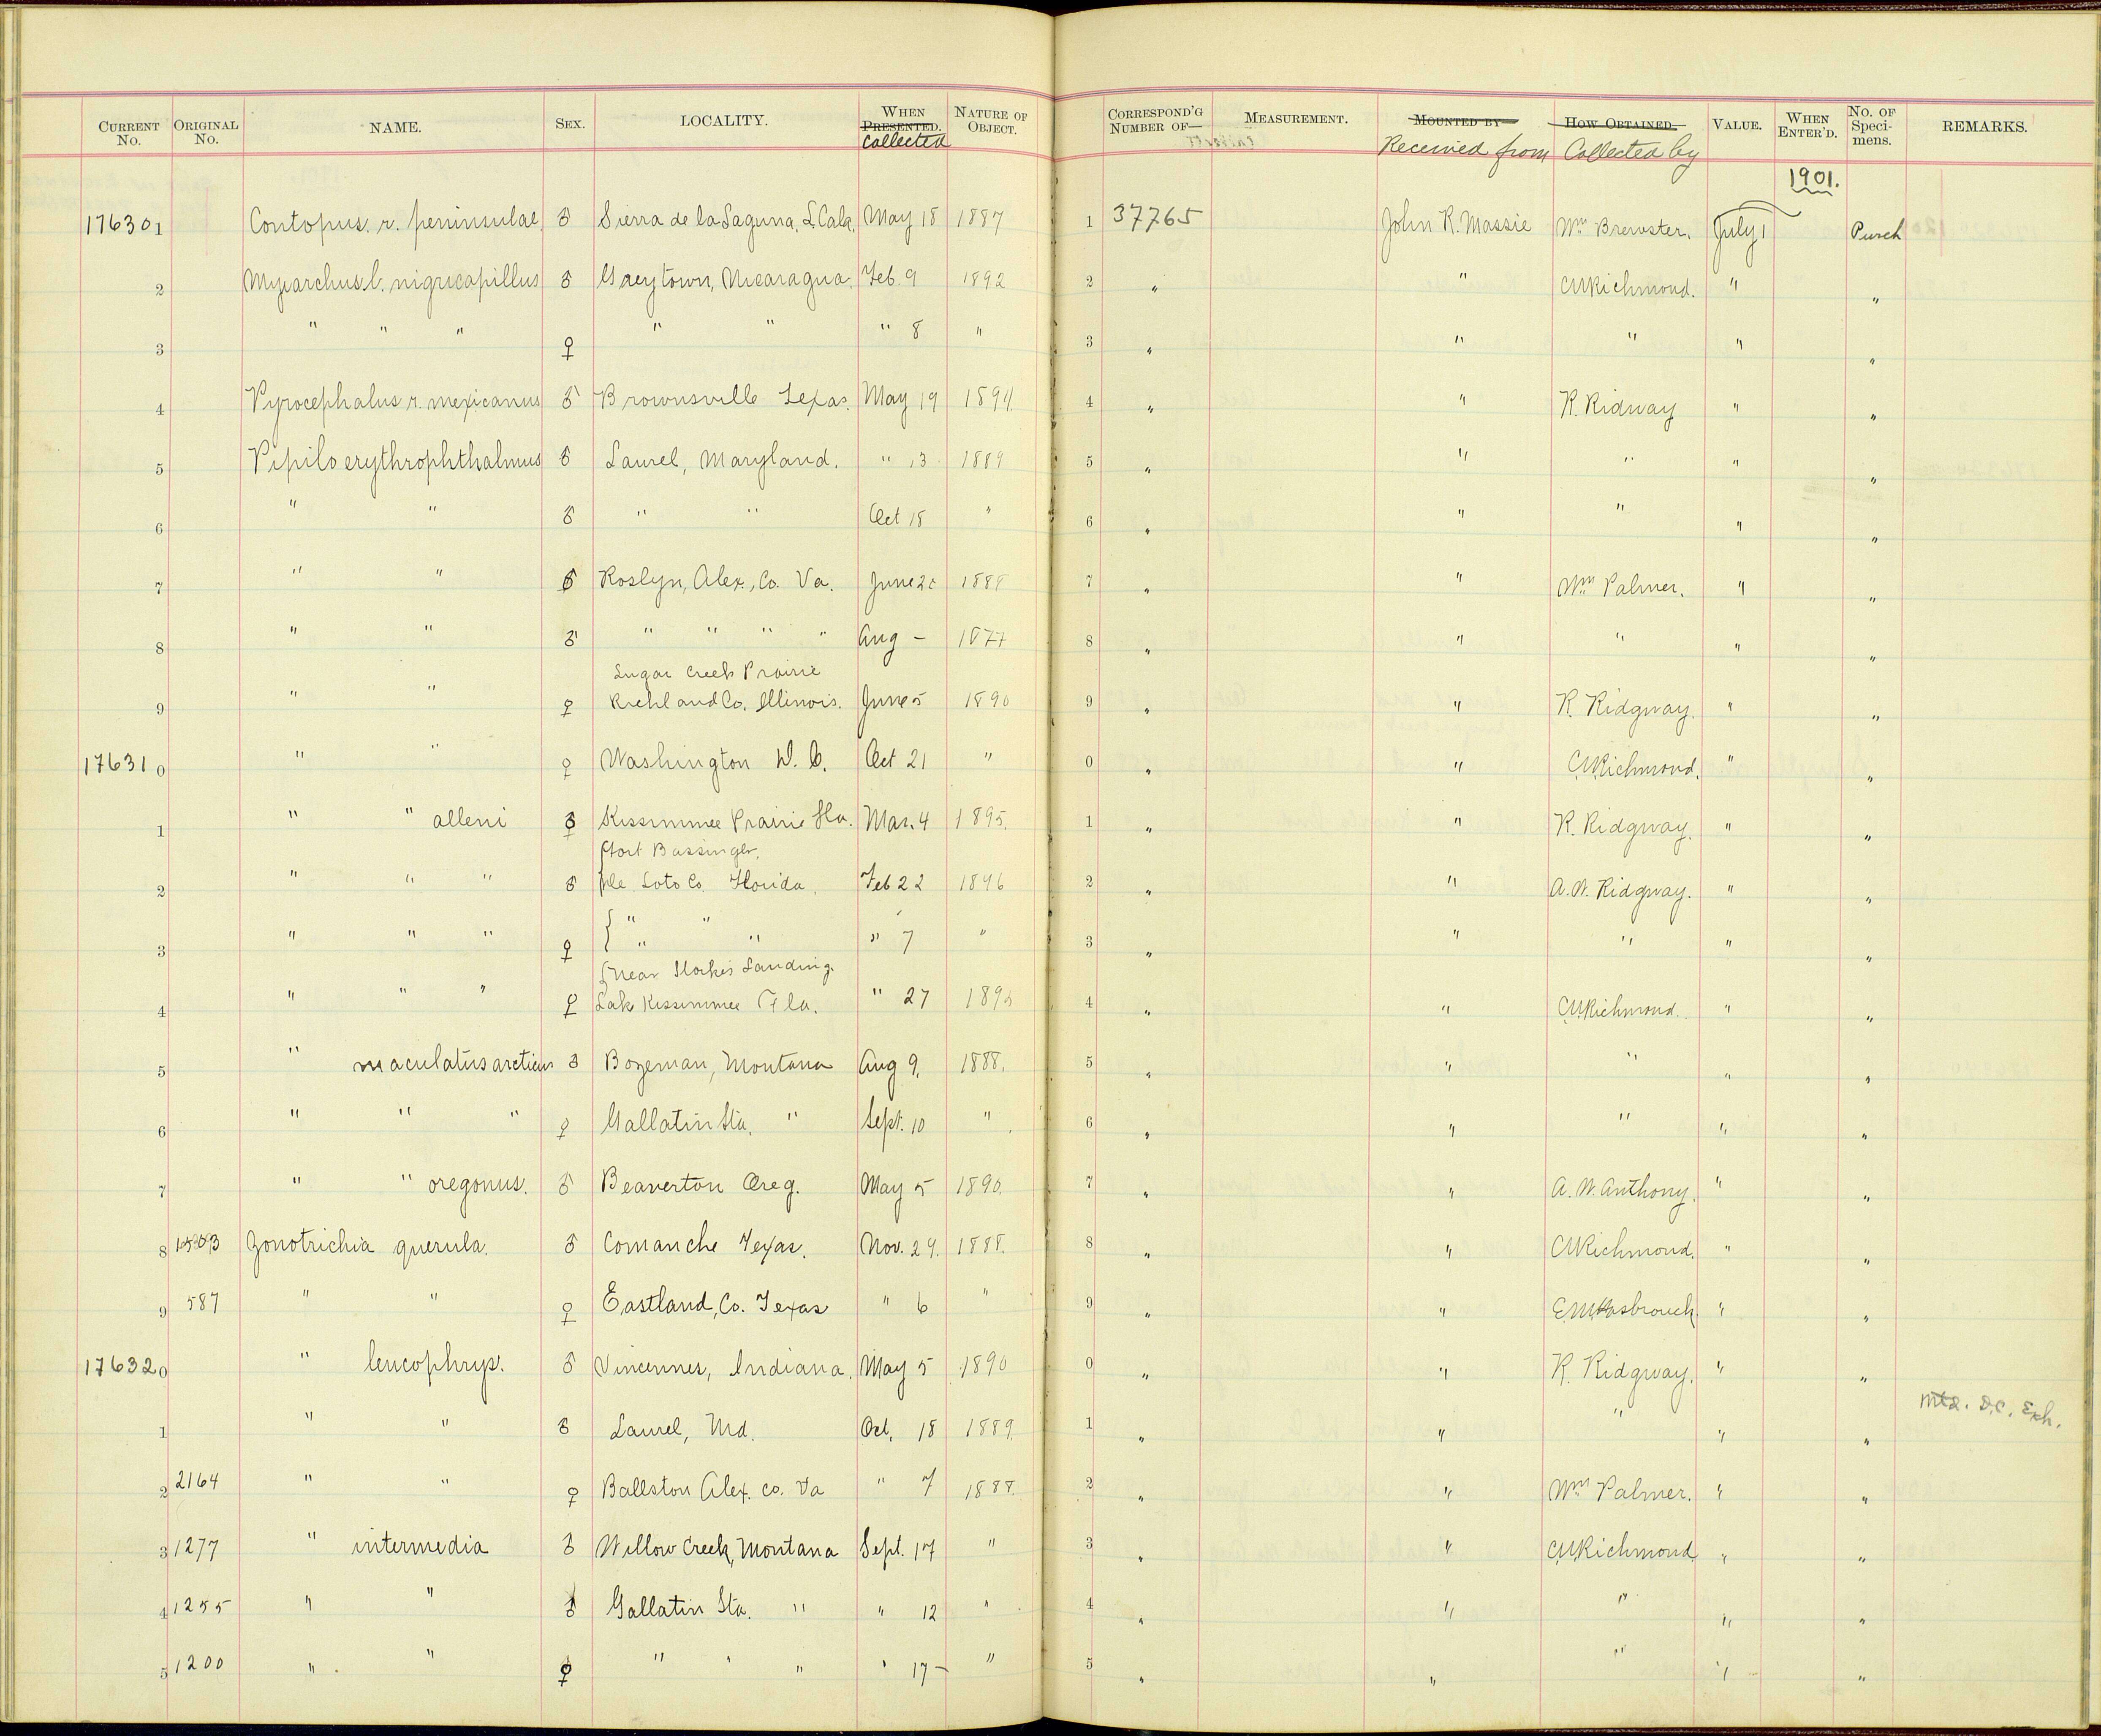 CURRENT No. ORIGINAL No. NAME. SEX. LOCALITY. WHEN PRESENTED. Collected NATURE OF OBJECT. CORRESPOND'G NUMBER OF— MEASUREMENT. MOUNTED BY Received from HOW OBTAINED Collected by VALUE. WHEN ENTER'D. No. OF Specimens. REMARKS.
1901.
176301 Contopus. r. peninsulae ♂ Sierra de la Laguna, L. Cala. May 18 1887 1 37765 John R. Massie Wm Brewster. July 1 Purch
2 Myiarchus. l. nigricapillus ♂ Greytown, Nicaragua. Feb. 9 1892 2 " " CWRichmond. " "
3 " " " ♀ " " " 8 " 3 " " " " "
4 Pyrocephalus r. mexicanus ♂ Brownsville Texas. May 19 1894 4 " " R. Ridway " "
5 Pipilo erythrophthalmus ♂ Laurel, Maryland. " 13 1889 5 " " " " "
6 " " ♂ " " Oct 18 " 6 " " " " "
7 " " ♂ Roslyn, Alex., Co. Va. June 1888 7 " " Wm Palmer. " "
8 " " ♂ " " " " Aug — 1877 8 " " " " "
Sugar Creek Prairie
9 " " ♀ Richland Co. Illinois. June 5 1890 9 " " R. Ridgway. " "
176310 " " ♀ Washington D. C. Oct 21 " 0 " " CWRichmond. " "
1 " " alleni Kissimmee Prairie Fla. Mar. 4 1895. 1 " " R. Ridgway. " "
Fort Bassinger,
2 " " " ♂ De Soto Co. Florida. Feb 22 1896 2 " " A. W. Ridgway. " "
3 " " " ♀ " " " " " 7 " 3 " " " " "
Near Landing.
4 " " " ♀ Lak Kissimmee Fla. " 27 1895 4 " " CWRichmond. " "
5 " maculatus arcticus ♂ Bozeman, Montana Aug 9. 1888. 5 " " " " "
6 " " " ♀ Gallatin Sta. " Sept. 10 " 6 " " " " "
7 " " oregonus. ♂ Beaverton Oreg. May 5 1890. 7 " " A. W. Anthony. " "
8 Zonotrichia querula. ♂ Comanche Texas. Nov. 29. 1888. 8 " " CWRichmond. " "
9 587 " " ♀ Eastland, Co. Texas " 6 " 9 " " E.M.Hasbrouck. " "
176320 " leucophrys. ♂ Vincennes, Indiana. May 5 1890 0 " " R. Ridgway. " "
1 " " ♂ Laurel, Md. Oct. 18 1889. 1 " " " " " mtd. D.C. Exh.
2 2164 " " ♀ Ballston Alex. co. Va " 7 1888. 2 " " Wm Palmer. " "
3 1277 " intermedia ♂ Willow Creek, Montana Sept. 17 " 3 " " CWRichmond " "
4 1255 " " ♂ Gallatin Sta. " " 12 " 4 " " " " "
5 1200 " " ♀ " " " " 17 — " 5 " " " " "